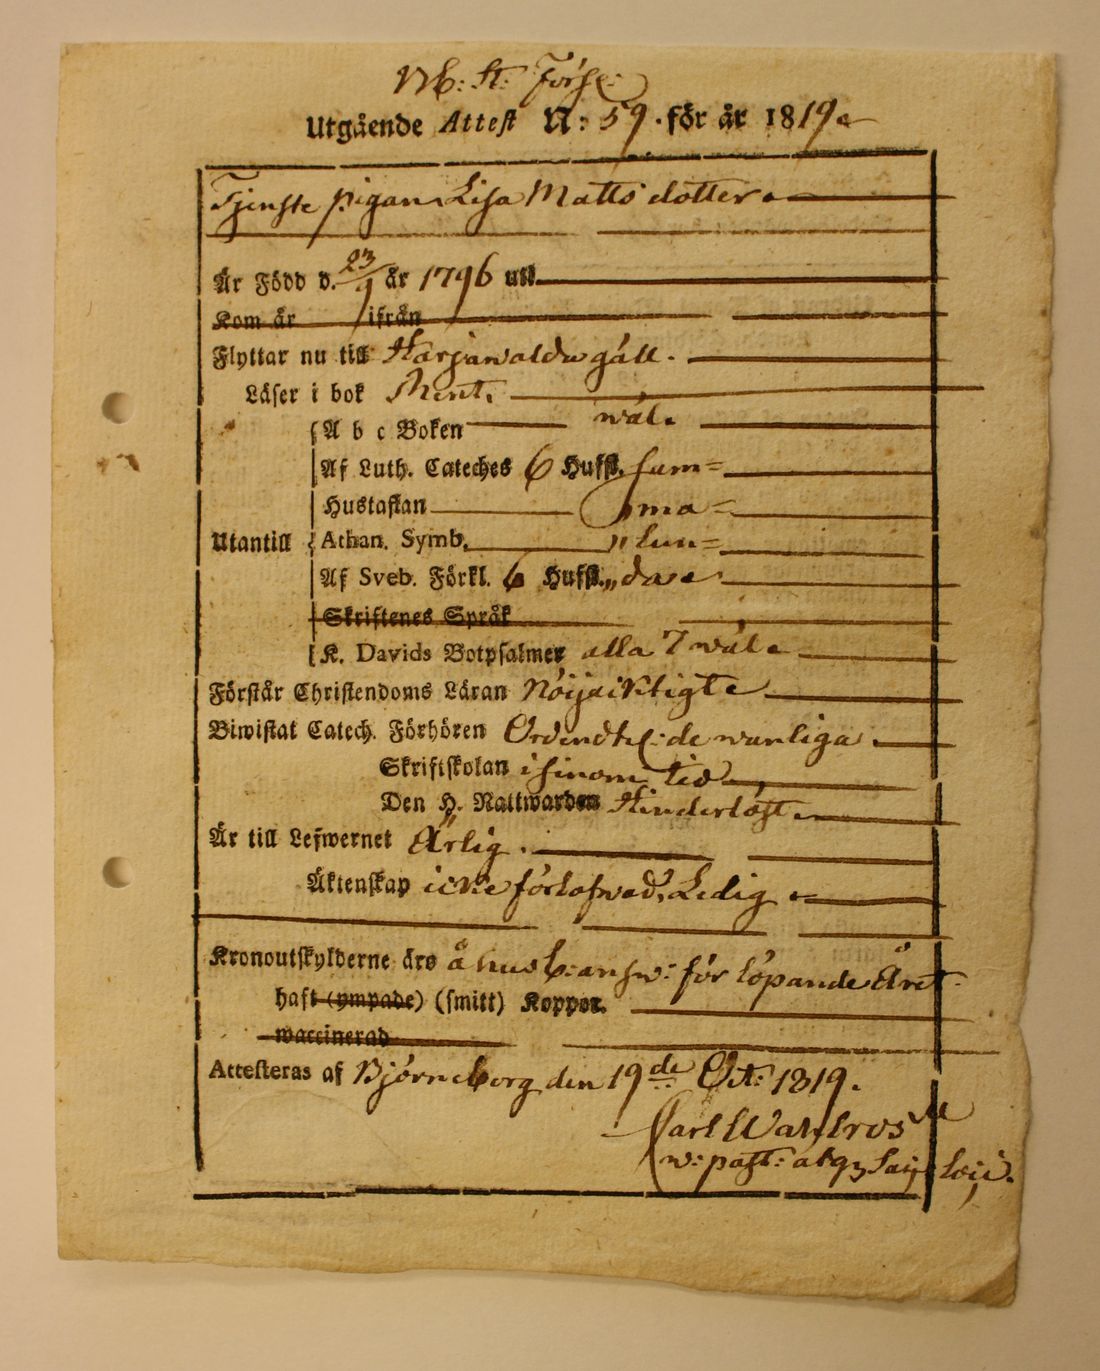 Utgående Attest N: 59. för år 1819
Tjenste pigan Lisa Matts dotter
Är Född d. 23/9 år 1796 uti
Kom år ifrån
Flyttar nu till Harjawalda gäll.
Läser i bok Rent.
A b c Boken wäl
Af Luth. Cateches 6 Hufst. sam=
Hustaflan ma=
Athan. Symb. lun=
Utantill
Af Sveb. Förkl. 6 Hufst. da
Skriftenes Språk
K. Davids Botpsalmer alla 7 wäl
Förstår Christendoms Läran Nöijaicktigt
Biwistat Catech. Förhören Ordentel: de wanliga
Skriftskolan i sinom tid
Den H. Nattwarden Hinderlöst
Är till Lefwernet Ärlig.
Äktenskap icke förlofwad, Ledig
Kronoutskylderne äro å husb: answ: för löpande Året
haft (ympade) (smitt) Koppor.
waccinerad
Attesteras af Björneborg den 19de Oct: 1819.
Carl Wahlroos
w: past: